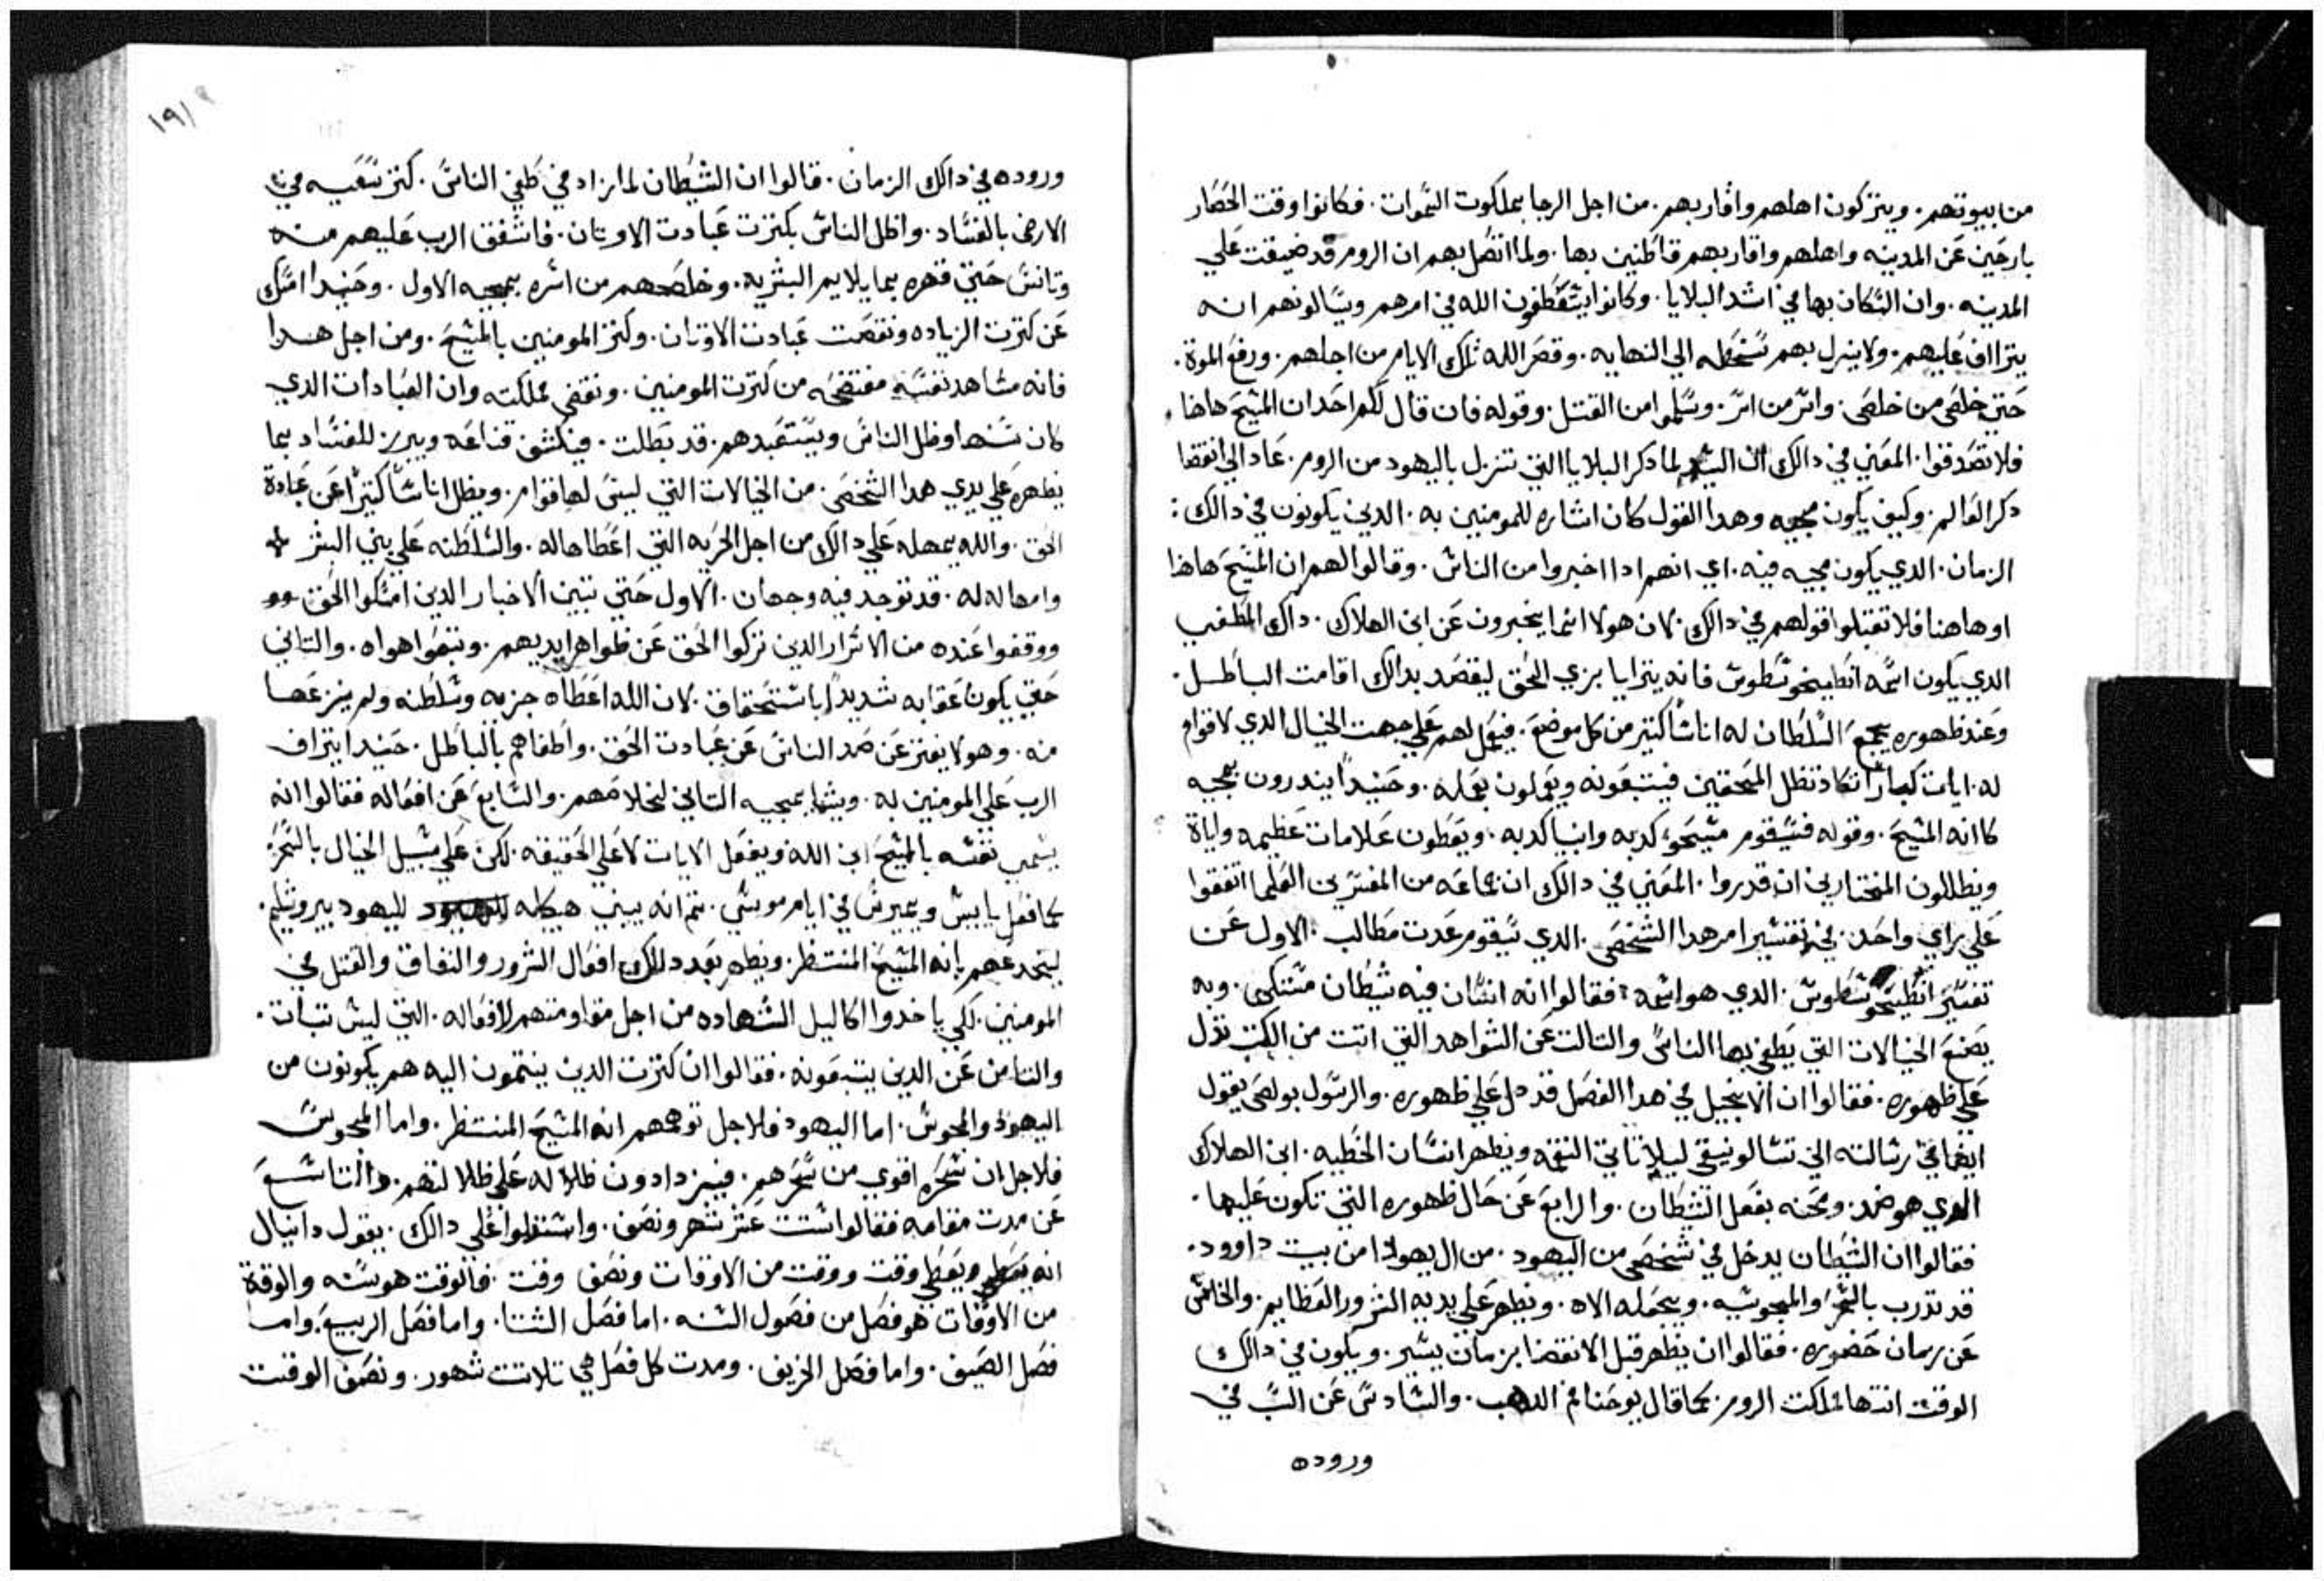 من بيوتهم. ويتركون اهلهم واقاربهم. من اجل الرجا بملكوت السموات. فكانوا وقت الحصار
بارحين عن المدينه واهلهم واقاربهم قاطنين بها. ولما اتصل بهم ان الروم قد ضيقت علي
المدينه. وان السكان بها في اشد البلايا. وكانوا يستعطفون الله في امرهم ويسالونهم انه
يتراف عليهم. ولا ينزل بهم سخطه الي النهايه. وقصر الله تلك الايام من اجلهم. ورفع الموة.
حتي خلص من خلص. واسر من اسر. وسلموا من القتل. وقوله فان قال لكم احد ان المسيح هاهنا
فلا تصدقوا. المعني في دالك ان السيد لما دكر البلايا التي تنزل باليهود من الروم. عاد الي انقضا
دكر العالم. وكيف يكون مجيه وهدا القول كان اشاره للمومنين به. الدين يكونون في دالك:
الزمان. الدي يكون مجيه فيه. اي انهم ادا اخبروا من الناس. وقالوا لهم ان المسيح هاهنا
او هاهنا فلا تقبلوا قولهم في دالك. لان هولا انما يخبرون عن ابن الهلاك. داك المطغي
الدي يكون اسمه انطيخوسطوس فانه يترايا بزي الحق ليقصد بدالك اقامت الباطل.
وعند ظهوره يجمع السلطان له اناسا كتير من كل موضع. فيعمل لهم علي جهت الخيال الدي لاقوام
له. ايات كبارا تكاد تظل المحقين فيتبعونه ويعملون بعمله. وحينيدا يندرون بمجيه
كانه المسيح. وقوله فسيقوم مسيحو كدبه وانبيا كدبه. ويعطون علامات عظيمه واياة
ويظللون المختارين ان قدروا. المعني في دالك ان جماعه من المفسرين العلما اتفقوا
علي راي واحد. في تفسير امر هدا الشخص. الدي سيقوم عدت مطالب. الاول عن
تفسير انطيخوسطوس. الدي هو اسمه: فقالوا انه انسان فيه شيطان متكي. وبه
يصنع الخيالات التي يطغي بها الناس والتالت عن الشواهد التي اتت من الكتب تدل
علي ظهوره. فقالوا ان الانجيل في هدا الفصل قد دل علي ظهوره. والرسول بولص يقول
ايضا في رسالته الي تسالونيقي ليلا تاتي النقمه ويظهر انسان الخطيه. ابن الهلاك
الدي هو ضد. ومحنه بفعل الشيطان. والرابع عن حال ظهوره التي تكون عليها.
فقالوا ان الشيطان يدخل في شخص من اليهود. من ال يهودا من بيت داوود.
قد تدرب بالسحر والمجوسيه. ويجعله الاه. ويظهر علي يديه الشرور العظايم. والخامس
عن زمان حضوره. فقالوا ان يظهر قبل الانقضا بزمان يسير. ويكون في دالك
الوقت انتها مملكت الروم. كما قال يوحنا فم الدهب. والسادس عن السبب في
وروده
١٩١
وروده في دالك الزمان. قالوا ان الشيطان لما زاد في طغي الناس. كتر سعيه في
الارض بالفساد. واظل الناس بكترت عبادت الاوتان. فاشفق الرب عليهم منه
وتانس حتي قهره بما يلايم البشريه. وخلصهم من اسره بمجيه الاول. وحينيدا امسك
عن كترت الزياده ونقصت عبادت الاوتان. وكتر المومنين بالمسيح. ومن اجل هدا
فانه مشاهد نفسه مفتضحه من كترت المومنين. ونقض مملكته وان العبادات الدي
كان سنها وظل الناس ويستعبدهم. قد بطلت. فيكشف قناعه ويبرز للفساد بما
يظهره علي يدي هدا الشخص. من الخيالات التي ليس لها قوام. ويظل اناسا كتيرا عن عبادة
الحق. والله يمهله علي دالك من اجل الحريه التي اعطاها له. والسلطنه علي بني البشر
وامهاله له. قد توجد فيه وجهان. الاول حتي تبين الاخيار الدين امسكوا الحق
ووقفوا عنده من الاشرار الدين تركوا الحق عن ظواهر ايديهم. وتبعوا هواه. والتاني
حتي يكون عقابه شديدا باستحقاق. لان الله اعطاه حريه وسلطنه ولم ينزعها
منه. وهو لا يفتر عن صد الناس عن عبادت الحق. واطغاهم بالباطل. حينيدا يتراف
الرب علي المومنين به. ويشا بمجيه التاني لخلاصهم. والسابع عن افعاله فقالوا انه
يسمي نفسه بالمسيح ابن الله ويفعل الايات لا علي الحقيقه. لكن علي سبيل الخيال بالسحر:
كما فعل يابيس ويمبريس في ايام موسي. تم انه يبني هيكله لليهود بيروشليم.
ليخدعهم بانه المسيح المنتظر. ويظهر بعد دالك افعال الشرور والنفاق والقتل في
المومنين. لكي ياخدوا اكاليل الشهاده من اجل مقاومتهم لافعاله. التي ليس تبات.
والتامن عن الدين يتبعونه. فقالوا ان كترت الدين ينتمون اليه هم يكونون من
اليهود والمجوس. اما اليهود فلاجل توهمهم انه المسيح المنتظر. واما المجوس
فلاجل ان سحره اقوي من سحرهم. فيزدادون ظلاله علي ظلالتهم. والتاسع
عن مدت مقامه فقالوا ستت عشر شهر ونصف. واستدلوا علي دالك. بقول دانيال
انه يعطي وقت ووقت من الاوقات ونصف وقت. فالوقت هو سنه والوقة
من الاوقات هو فصل من فصول السنه. اما فصل الشتا. واما فصل الربيع. واما
فصل الصيف. واما فصل الخريف. ومدت كل فصل هي تلاتت شهور. ونصف الوقت